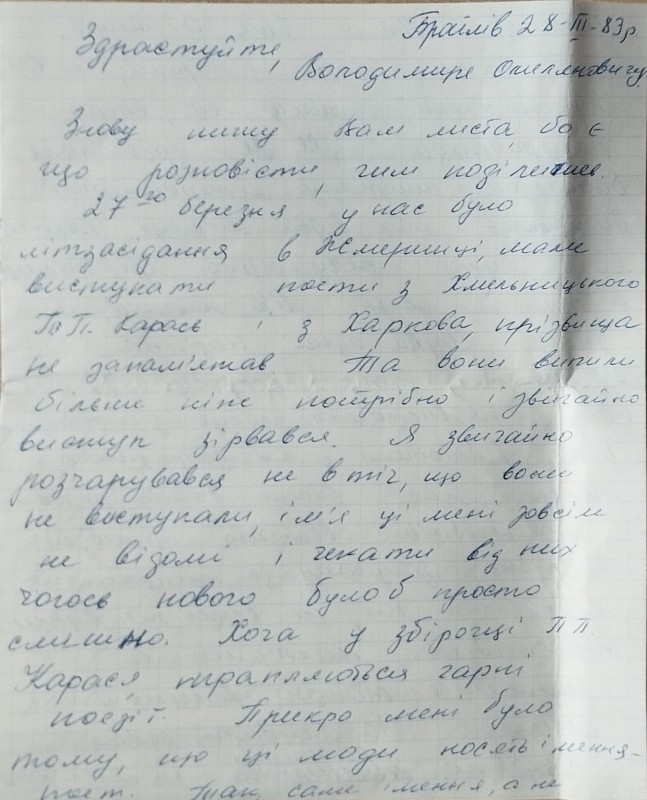 Браїлів 28-III-83р.
Здрастуйте,
Володимире Омеляновичу
Знову пишу Вам листа, бо є
що розповісти, чим поділитись.
27го березня у нас було
літзасідання в Жмеринці, мали
виступати поети з Хмельницького
П.П. Карась і з Харкова, прізвища
не запам'ятав. Та вони випили
більш ніж потрібно і звичайно
виступ зірвався. Я звичайно
розчарувався не в тім, що вони
не виступали, ім'я ці мені зовсім
не відомі і чекати від них
чогось нового було б просто
смішно. Хоча у збірочці П.П.
Карася трапляються гарні
поезії. Прикро мені було
тому, що ці люди носять імення-
поет. Так, саме імення, а не